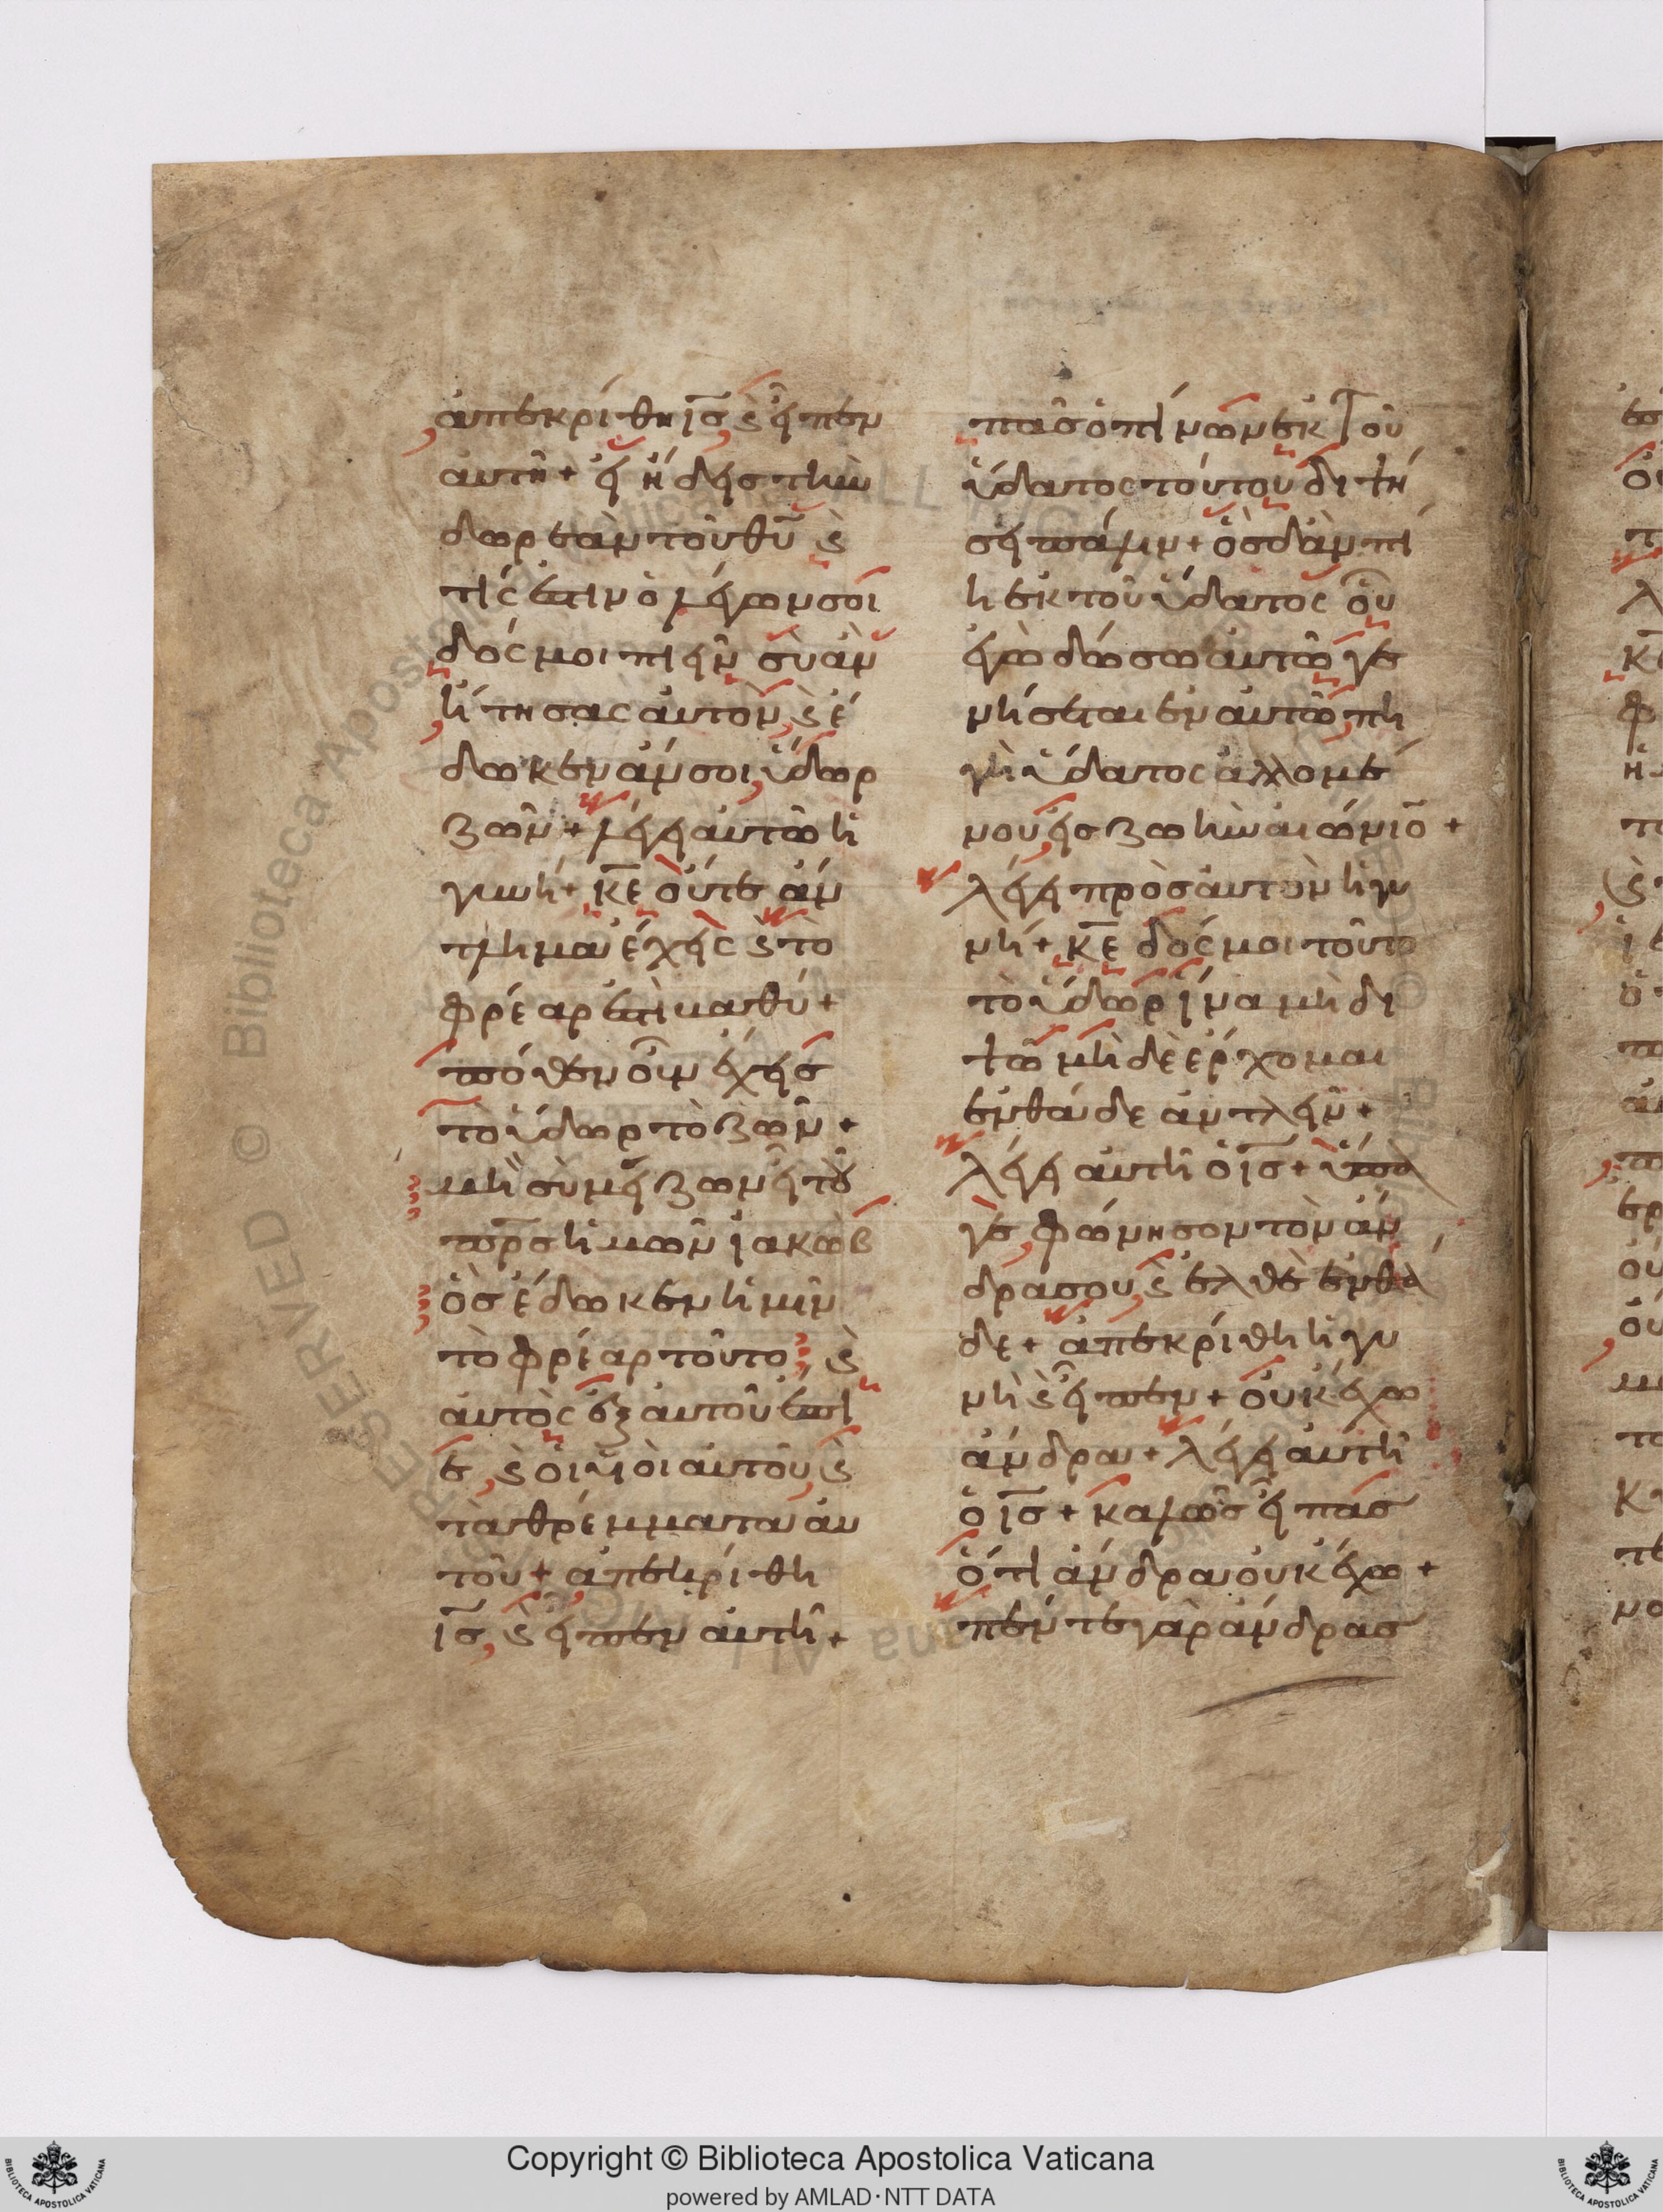 ἀπεκρίθη ις ϗ εἶπεν
αὐτῆ + εἰ ἤδεις τὴν ὑ
δωρεὰν τοῦ θυ ϗ
τίς ἐστιν ὁ λέγων σοι
δός μοι πιεῖν σὺ ἂν
ἤτησας αὐτὸν, ϗ ἔ
δωκεν ἄν σοι, ὕδωρ
ζῶν + λέγει αὐτῶ ἡ
γυνή + κε οὔτε ἄν
τλημα ἔχεις ϗ τὸ
φρέαρ ἐστὶ βαθύ +
πόθεν οὖν ἔχεις
τὸ ὕδωρ τὸ ζῶν +
μὴ σὺ μείζων εἶ τοῦ
πρς ἡμῶν ἰακὼβ
ὃς ἔδωκεν ἡμῖν
τὸ φρέαρ τοῦτο, ϗ
αὐτὸς ἐξ αὐτοῦ ἔπι
ε, ϗ οἱ υἱοὶ αὐτοῦ, ϗ
τὰ θρέμματα αὐ
τοῦ + ἀπεκρίθη
ις, ϗ εἶπεν αὐτῆ +
πᾶς ὁ πίνων ἐκ τοῦ
ὕδατος τούτου διψή
σει πάλιν + ὃς δ ἂν πί
η ἐκ τοῦ ὕδατος οὗ
ἐγὼ δώσω αὐτῶ γε
νήσεται ἐν αὐτῶ, πη
γὴ ὕδατος ἁλλομέ
νου, εἰς ζωὴν αἰώνιο +
λέγει πρὸς αὐτὸν ἡ γυ
νή + κε δός μοι τοῦτο
τὸ ὕδωρ ἵνα μὴ δι
ψῶ μὴ δὲ ἔρχομαι
ἐνθάδε ἀντλεῖν +
λέγει αὐτῆ ὁ ις + ὕπα
γε, φώνησον τὸν ἄν
δρα σου, ϗ ἐλθὲ ἐνθά
δε + ἀπεκρίθη ἡ γυ
νὴ ϗ εἶπεν + οὐκ ἔχω
ἄνδρα + λέγει αὐτῆ
ὁ ις + καλῶς εἶπας
ὅτι ἄνδρα οὐκ ἔχω +
πέντε γὰρ ἄνδρας
Copyright © Biblioteca Apostolica Vaticana
powered by AMLAD·NTT DATA